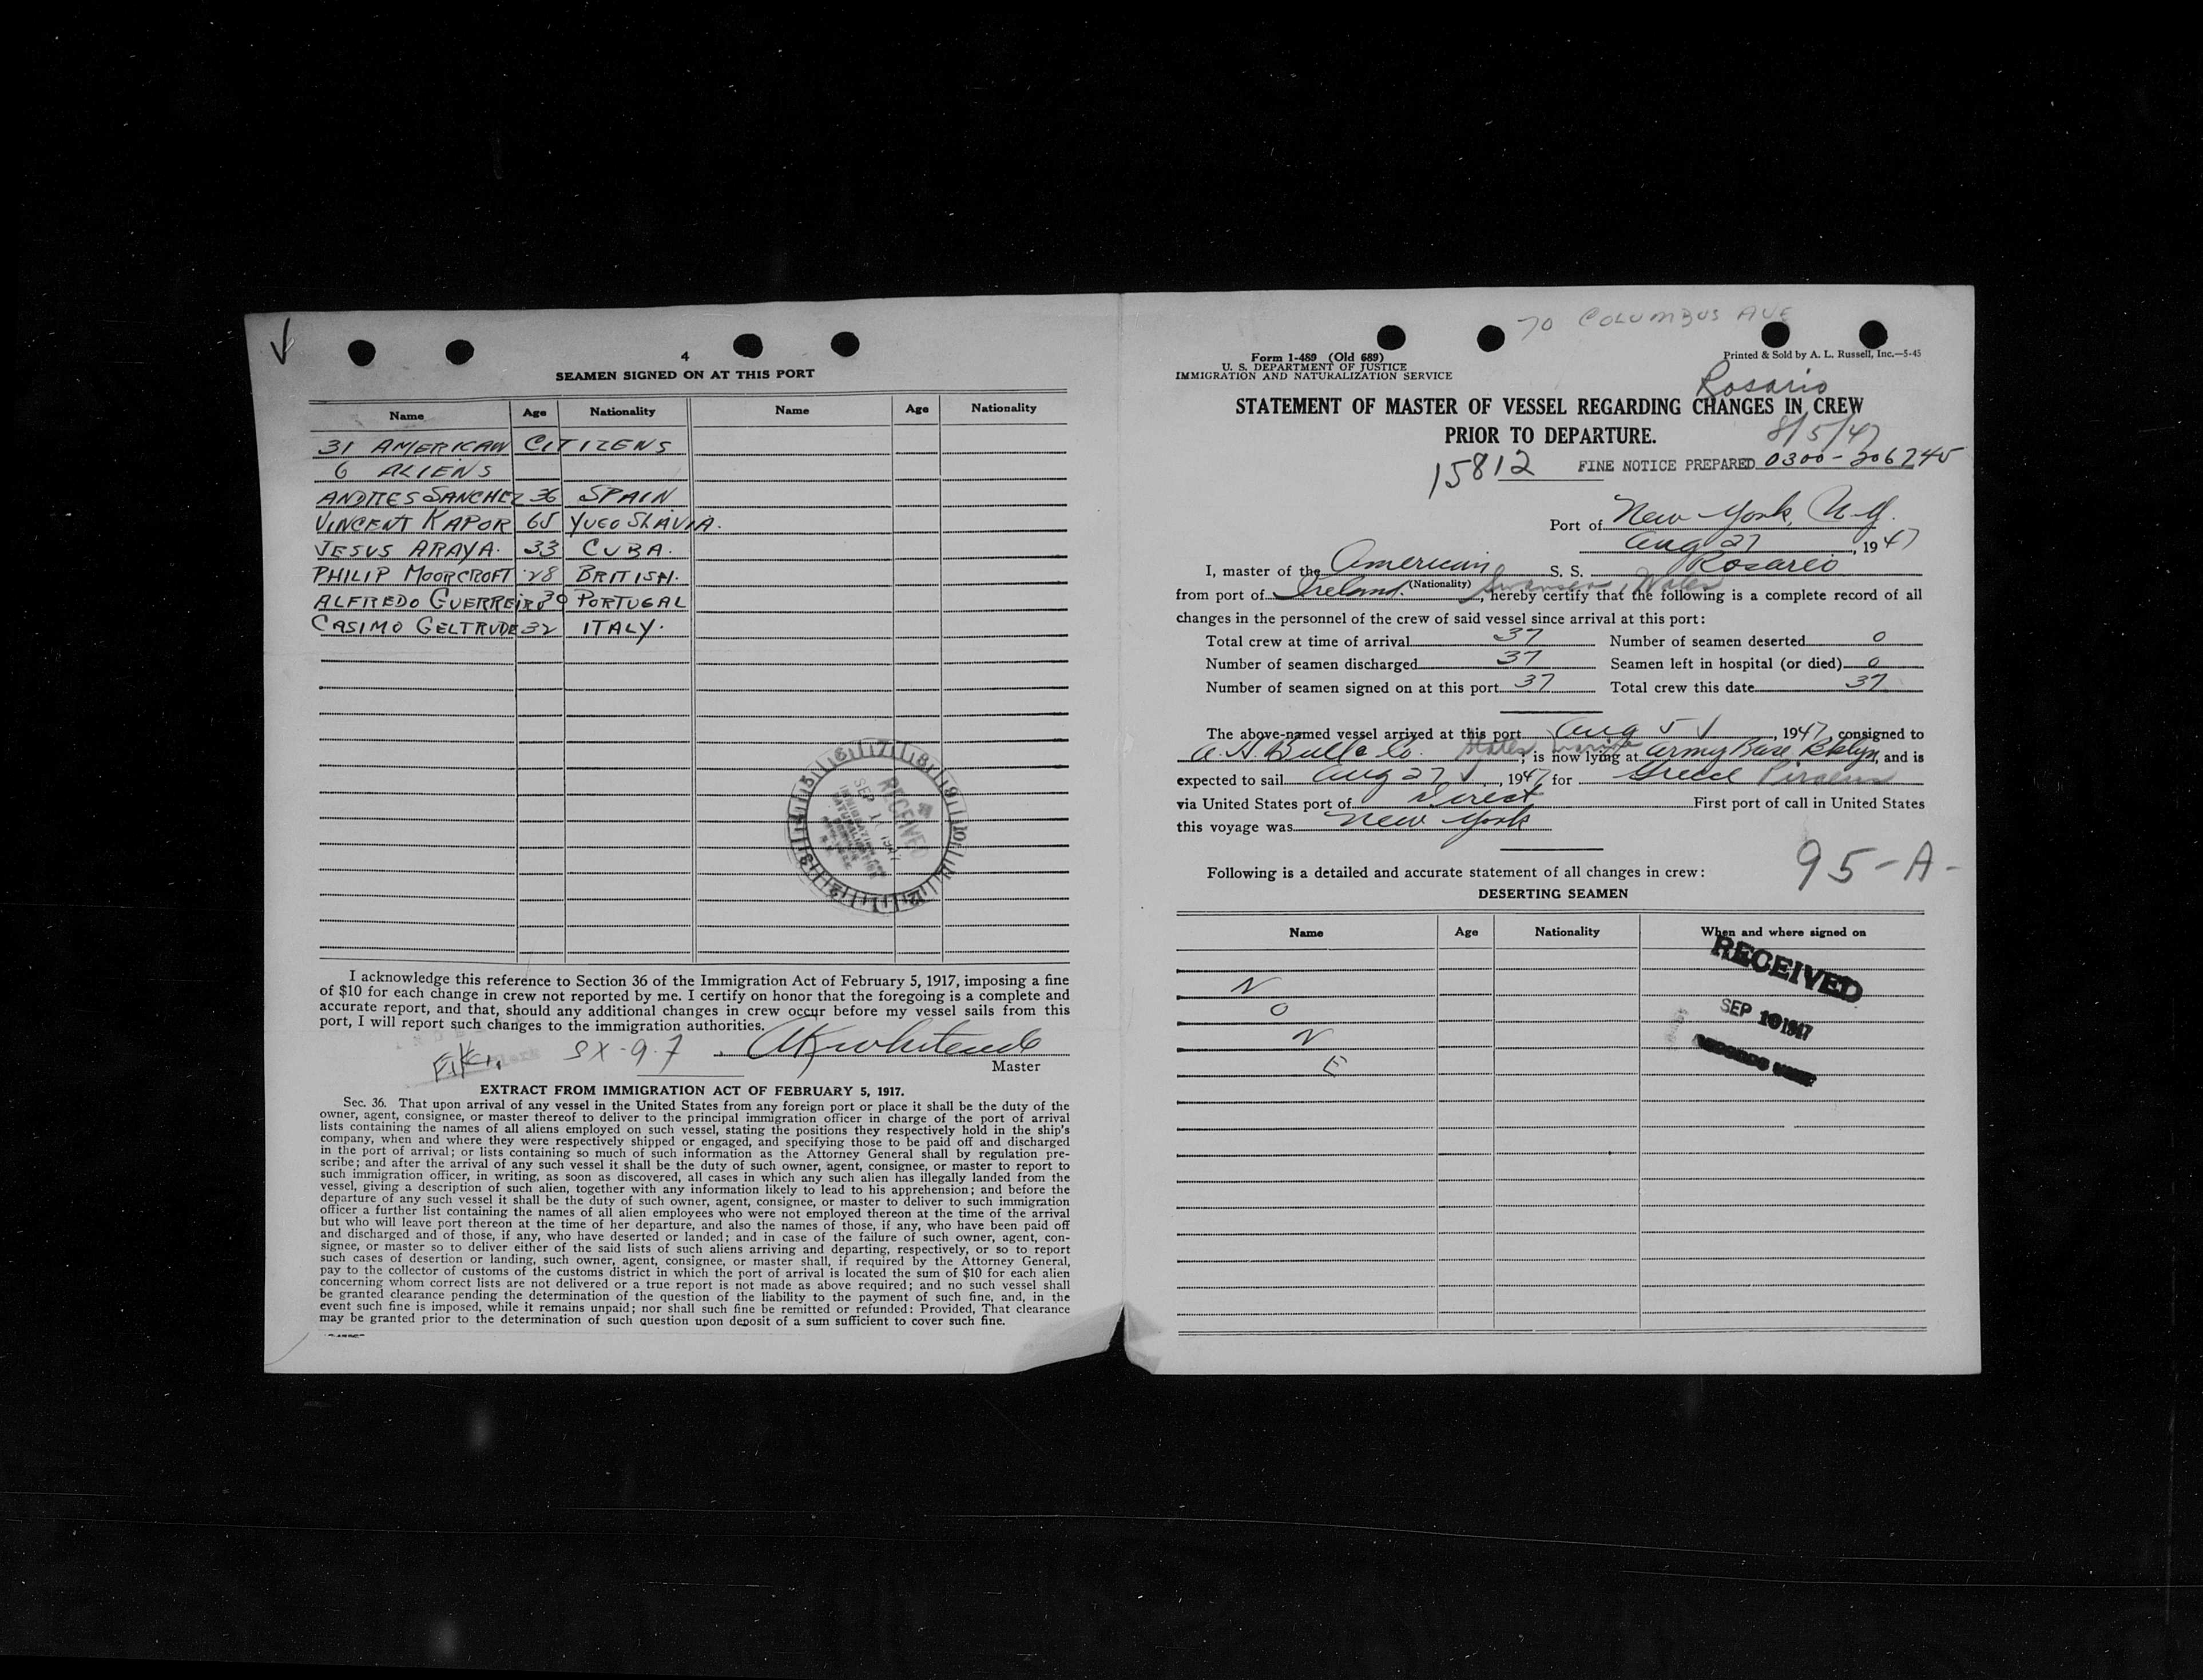 4
SEAMEN SIGNED ON AT THIS PORT
Name Age Nationality Name Age Nationality
31 AMERICAN CITIZENS
6 ALIENS
ANDRES SANCHEZ 36 SPAIN
VINCENT KAPOR 65 YUGO SLAVIA.
JESUS ARAYA. 33 CUBA.
PHILIP MOORCROFT 28 BRITISH.
ALFREDO GUERREIRO 30 PORTUGAL
CASIMO GELTRUDE 32 ITALY.
RECEIVED
SEP
I acknowledge this reference to Section 36 of the Immigration Act of February 5, 1917, imposing a fine
of $10 for each change in crew not reported by me. I certify on honor that the foregoing is a complete and
accurate report, and that, should any additional changes in crew occur before my vessel sails from this
port, I will report such changes to the immigration authorities.
SX-9.7
Master
EXTRACT FROM IMMIGRATION ACT OF FEBRUARY 5, 1917.
Sec. 36. That upon arrival of any vessel in the United States from any foreign port or place it shall be the duty of the
owner, agent, consignee, or master thereof to deliver to the principal immigration officer in charge of the port of arrival
lists containing the names of all aliens employed on such vessel, stating the positions they respectively hold in the ship's
company, when and where they were respectively shipped or engaged, and specifying those to be paid off and discharged
in the port of arrival; or lists containing so much of such information as the Attorney General shall by regulation pre-
scribe; and after the arrival of any such vessel it shall be the duty of such owner, agent, consignee, or master to report to
such immigration officer, in writing, as soon as discovered, all cases in which any such alien has illegally landed from the
vessel, giving a description of such alien, together with any information likely to lead to his apprehension; and before the
departure of any such vessel it shall be the duty of such owner, agent, consignee, or master to deliver to such immigration
officer a further list containing the names of all alien employees who were not employed thereon at the time of the arrival
but who will leave port thereon at the time of her departure, and also the names of those, if any, who have been paid off
and discharged and of those, if any, who have deserted or landed; and in case of the failure of such owner, agent, con-
signee, or master so to deliver either of the said lists of such aliens arriving and departing, respectively, or so to report
such cases of desertion or landing, such owner, agent, consignee, or master shall, if required by the Attorney General,
pay to the collector of customs of the customs district in which the port of arrival is located the sum of $10 for each alien
concerning whom correct lists are not delivered or a true report is not made as above required; and no such vessel shall
be granted clearance pending the determination of the question of the liability to the payment of such fine, and, in the
event such fine is imposed, while it remains unpaid; nor shall such fine be remitted or refunded: Provided, That clearance
may be granted prior to the determination of such question upon deposit of a sum sufficient to cover such fine.
70 COLUMBUS AVE
Form I-489 (Old 689)
U. S. DEPARTMENT OF JUSTICE
IMMIGRATION AND NATURALIZATION SERVICE
Printed & Sold by A. L. Russell, Inc.—5-45
Rosario
STATEMENT OF MASTER OF VESSEL REGARDING CHANGES IN CREW
PRIOR TO DEPARTURE.
8/5/47
15812 FINE NOTICE PREPARED 0300-206745
Port of New York, N.Y.
Aug 27, 1947
I, master of the American S. S. Rosario
(Nationality)
from port of Ireland. Swansea, Wales, hereby certify that the following is a complete record of all
changes in the personnel of the crew of said vessel since arrival at this port:
Total crew at time of arrival 37 Number of seamen deserted 0
Number of seamen discharged 37 Seamen left in hospital (or died) 0
Number of seamen signed on at this port 37 Total crew this date 37
The above-named vessel arrived at this port Aug 5, 1947, consigned to
A. H. Bull & Co. ; is now lying at Army Base Bklyn, and is
expected to sail Aug 27, 1947 for Greece Piraeus
via United States port of Direct First port of call in United States
this voyage was New York
95-A-
Following is a detailed and accurate statement of all changes in crew:
DESERTING SEAMEN
Name Age Nationality When and where signed on
RECEIVED
N
O
SEP 10 1947
N
E